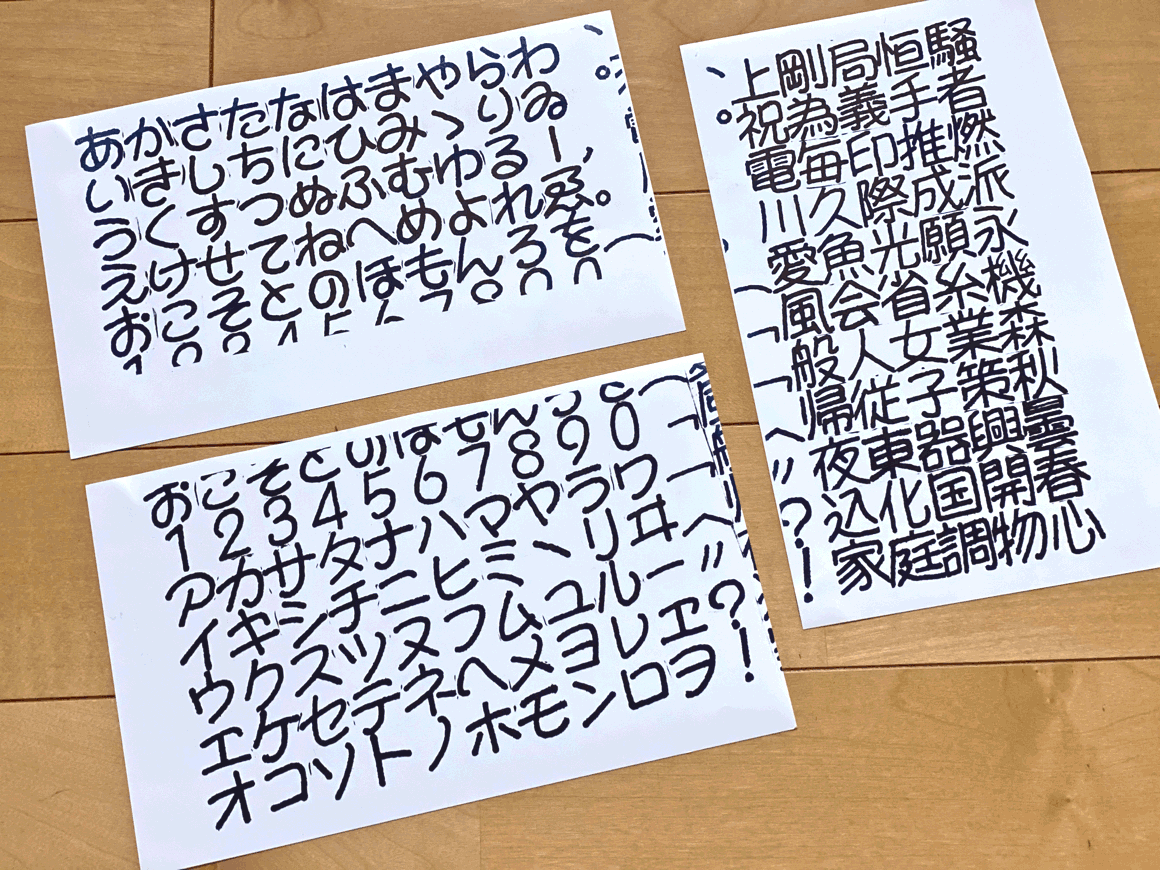 あかさたなはまやらわ
いきしちにひみゝりゐ
うくすつぬふむゆるー
えけせてねへめよれゑ。
おこそとのほもんろを
お
1234567890
アカサタナハマヤラワ
イキシチニヒミヽリヰ
ウクスツヌフムユルー〃
エケセテネヘメヨレヱ？
オコソトノホモンロヲ！
、上剛局恒騒
。祝為義手者
電毎印推燃
川久際成派
愛魚光願永
風会省糸機
般人女業森
帰従子策秋
〃夜東器興曇
？込化国開春
！家庭調物心